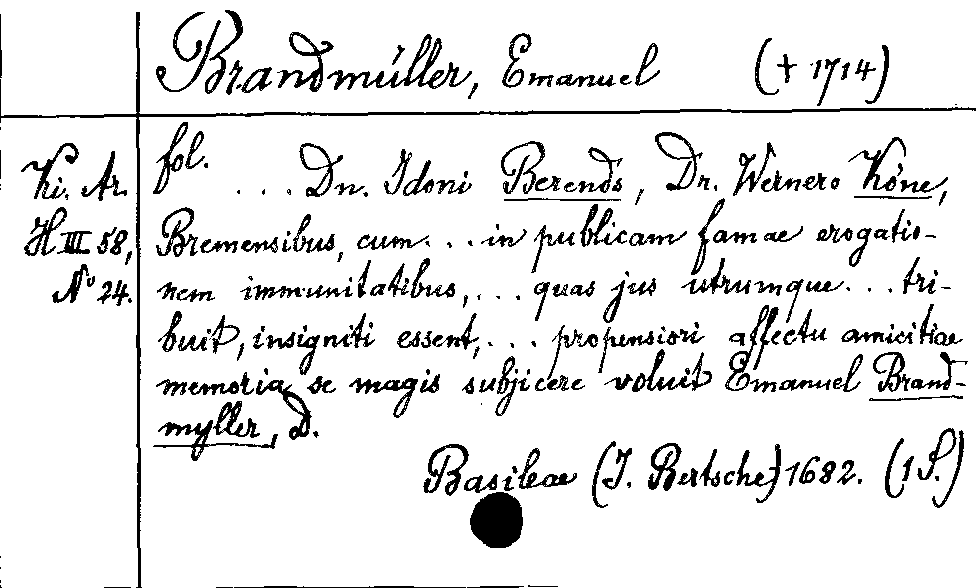 Brandmüller, Emanuel († 1714)
Ki. Ar.
H III 58,
No 24.
fol.
... Dn. Idoni Berends, Dr. Wernero Köne,
Bremensibus, cum ... in publicam famae erogatio-
nem immunitatibus, ... quas jus utrumque ... tri-
buit, insigniti essent, ... propensiori affectu amicitiae
memoria se magis subjicere voluit Emanuel Brand-
myller, D.
Basileae (J. Bertsche) 1682. (1 S.)